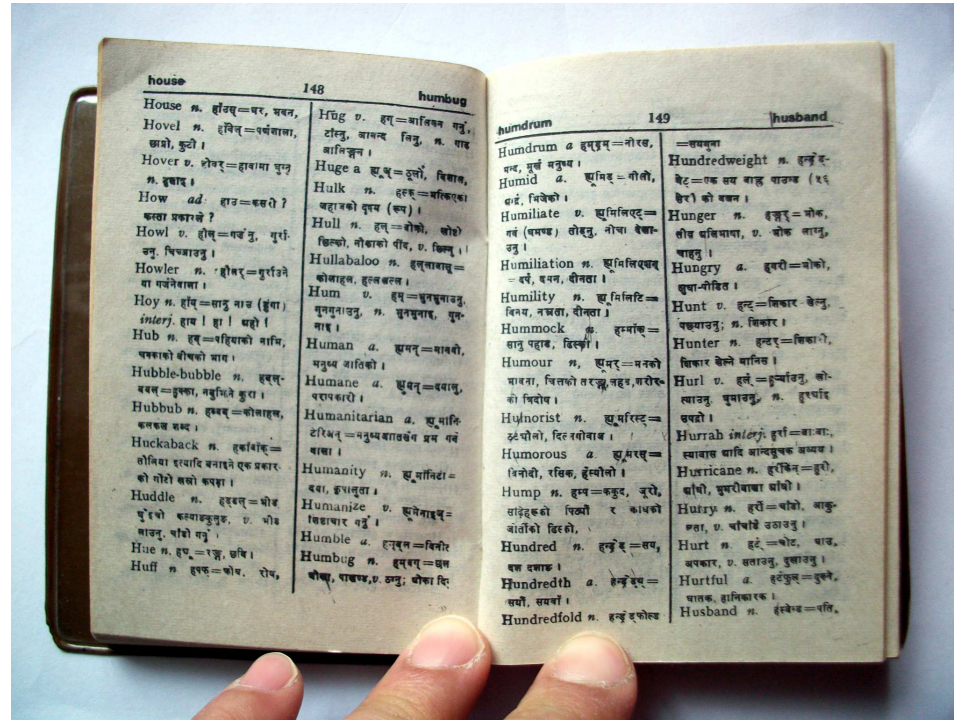 house 148 humbug
House n. हाँउस्=घर, भवन,
Hovel n. हॉवेल्=पर्णशाला,
छाप्रो, कुटी ।
Hover v. होवर्=हावामा
n.
How ad हाउ=कसरी ?
कस्ता प्रकारले ?
Howl v. हौल्=गर्जनु, गुर्रा-
उनु, चिच्च्याउनु ।
Howler n. हौलर्=गुर्राउने
या गर्जनेवाला ।
Hoy n. हॉय्=सानु नाउ (डुंगा)
interj. हाय ! हा ! अहो !
Hub n. हब्=पहियाको नाभि,
चक्काको बीचको भाग ।
Hubble-bubble n. हबल्-
बबल्=हुक्का,
Hubbub n. हब्बब्=कोलाहल,
कलकल शब्द ।
Huckaback n. हकबॅक्=
तौलिया इत्यादि बनाइने एक प्रकार-
को गोटो खस्रो कपडा ।
Huddle n. हड्डल्=भीड
v. भीड
लाउनु, चाँडो गर्नु ।
Hue n. ह्यू=रङ्ग, छवि ।
Huff n हफ्फ्=क्रोध, रोष,
Hug v. हग्=आलिंगन गर्नु,
टाँस्नु, आनन्द लिनु, n. गाढ
आलिङ्गन ।
Huge a ह्यूज्=ठूलो, विशाल,
Hulk n. हल्क्=
जहाजको दृश्य (रूप) ।
Hull n. हल्=बोक्रो,
छिल्को, नौकाको पींद, v. छिल्नु ।
Hullabaloo n. हल्लाबालू=
कोलाहल, हल्लखल्ल ।
Hum v. हम्=भुनभुनाउनु,
गुनगुनाउनु, n. भुनभुनाइ, गुन-
नाइ ।
Human a. ह्यूमन्=मानवी,
मनुष्य जातिको ।
Humane a. ह्यूमेन्=दयालु,
परोपकारी ।
Humanitarian a. ह्यूमानि-
टेरिअन्=मनुष्यजातसंग प्रेम गर्ने
वाला ।
Humanity n. ह्यूमॉनिटी=
दया, कृपालुता ।
Humanize v. ह्यूमेनाइज्=
शिष्टाचार गर्नु ।
Humble a. हम्बल्=विनीत
Humbug n. हम्बग्=छल
धोका, पाखण्ड, v. ठग्नु; धोका दि
humdrum 149 husband
Humdrum a हम्ड्रम्=नीरस,
मन्द, मूर्ख मनुष्य ।
Humid a. ह्यूमिड्=गीलो,
आर्द्र, भिजेको ।
Humiliate v. ह्यूमिलिएट्=
गर्व (घमण्ड) तोड्नु, नीचा देखा-
उनु ।
Humiliation n. ह्यूमिलिएशन्
=दर्प, दमन, दीनता ।
Humility n. ह्यूमिलिटि=
विनय, नम्रता, दीनता ।
Hummock n. हम्मॉक्=
सानु पहाड, ढिस्को ।
Humour n, ह्यूमर्=मनको
भावना, चित्तको तरङ्ग, लहड, शरीर-
को त्रिदोष ।
Humorist n. ह्यूमरिस्ट=
ठट्यौलो, दिल्लगीबाज ।
Humorous a. ह्यूमरस्=
विनोदी, रसिक, हँस्यौलो ।
Hump n. हम्प्=ककुद, जूरो,
साँढेहरूको पिठ्यौं र काधको
जाँतीको ढिस्को,
Hundred n. हन्ड्रेड्=सय,
दश दशक ।
Hundredth a. हन्ड्रेड्थ्=
सयौं, सयवाँ ।
Hundredfold n. हन्ड्रेड्फोल्ड
=सयगुना
Hundredweight n. हन्ड्रेड्-
वेट्=एक सय बाह्र पाउण्ड (५६
सेर) को वजन ।
Hunger n. हङ्गर्=भोक,
तीव्र अभिलाषा, v. भोक लाग्नु,
चाहनु ।
Hungry a. हंगरी=भोको,
क्षुधा-पीडित ।
Hunt v. हन्ट्=शिकार खेल्नु,
पछ्याउनु; n. शिकार ।
Hunter n. हन्टर्=शिकारी,
शिकार खेल्ने मानिस ।
Hurl v. हर्ल्=हुर्र्याउनु, लो-
त्याउनु, घुमाउनु, n. हुर्र्याइ
उपद्रो ।
Hurrah interj. हुर्रा=वाःवाः,
स्यावास आदि आनन्दसूचक अव्यय ।
Hurricane n. हरीकेन्=हुरी,
आँधी, भुमरीवाला आँधी ।
Hurry n. हर्री=चाँडो, आकु-
लता, v. चाँचाँडै उठाउनु ।
Hurt n. हर्ट्=चोट, घाउ,
अपकार, v. सताउनु, दुखाउनु ।
Hurtful a. हर्टफुल्=दुख्ने,
घातक, हानिकारक ।
Husband n. हस्बेन्ड=पति,